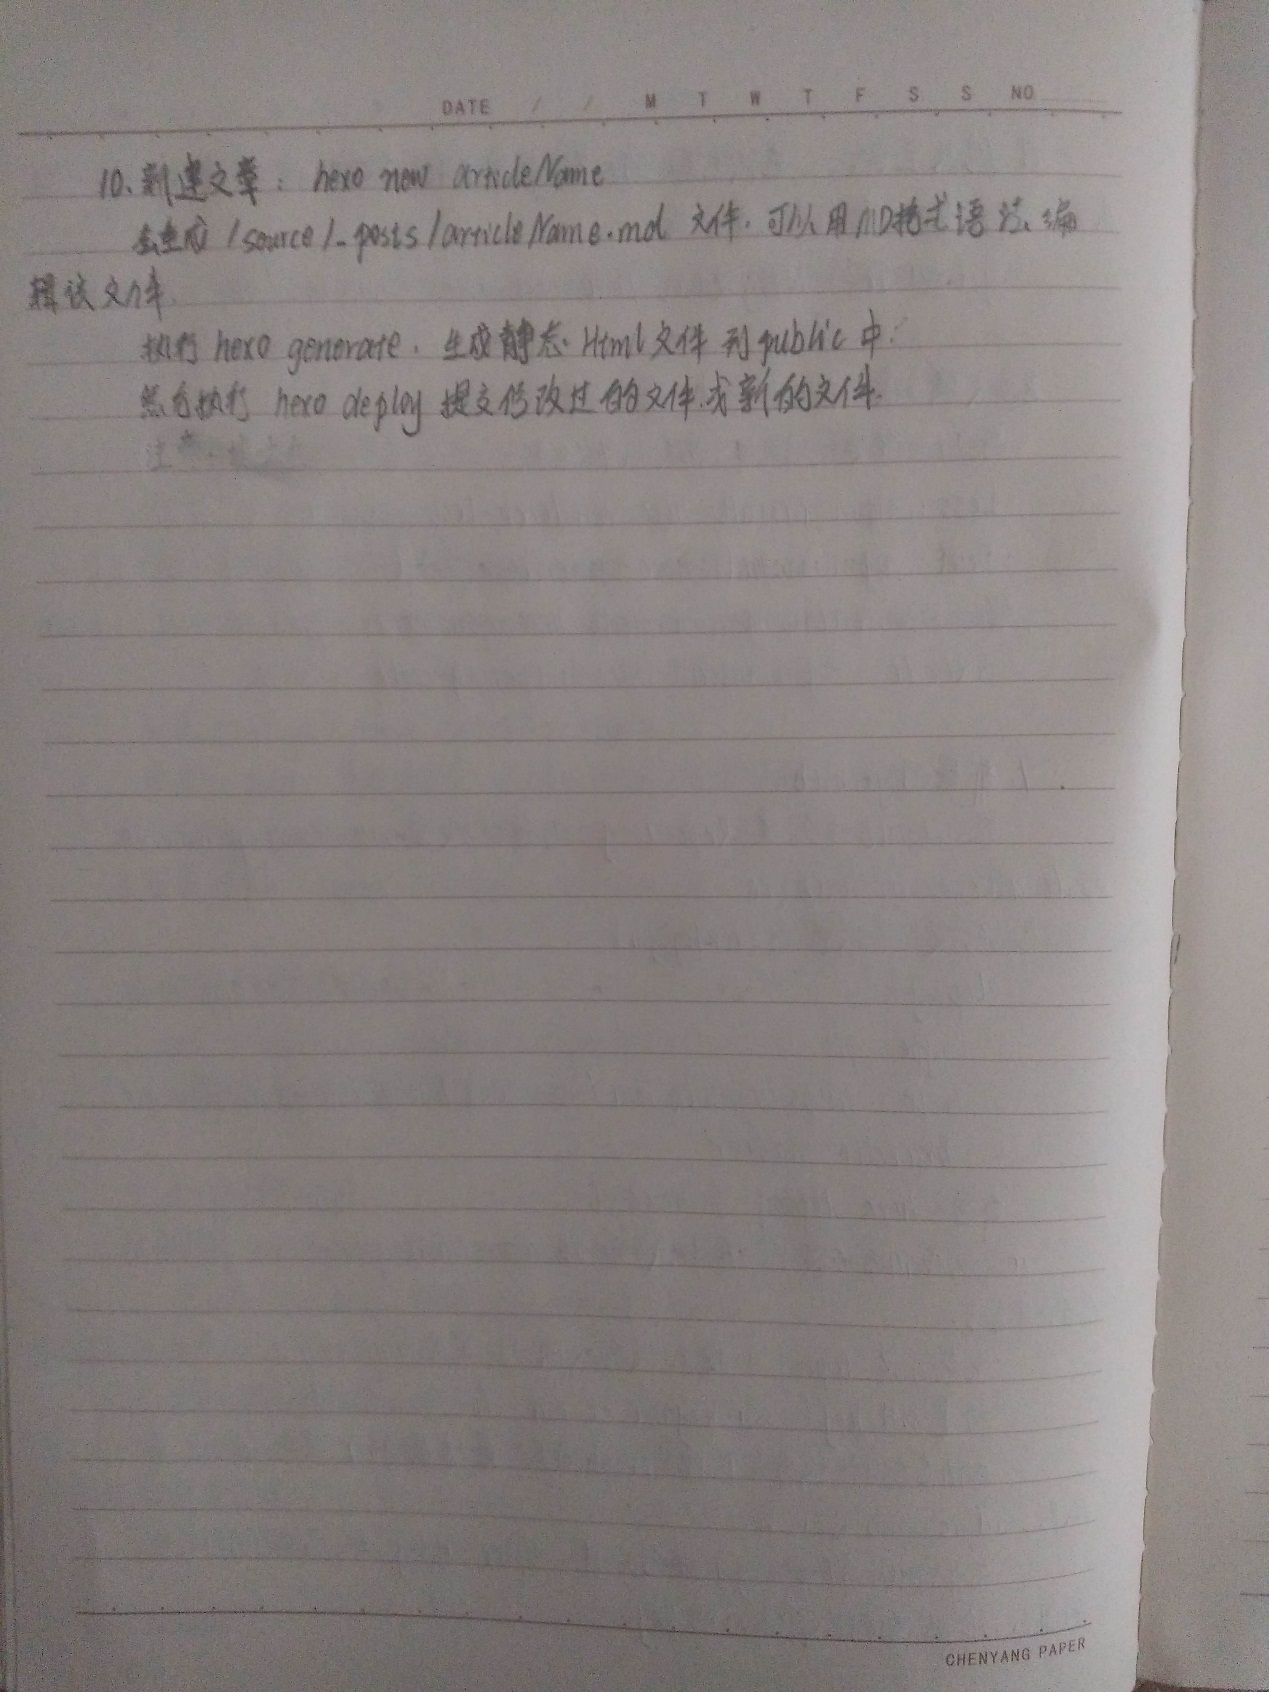 DATE / / M T W T F S S NO
10. 新建文章： hexo new articleName
会生成 /source/_posts/articleName.md 文件. 可以用MD格式语法编
辑该文件
执行 hexo generate. 生成静态 Html文件 到public中.
然后执行 hexo deploy 提交修改过的文件或新的文件.
CHENYANG PAPER